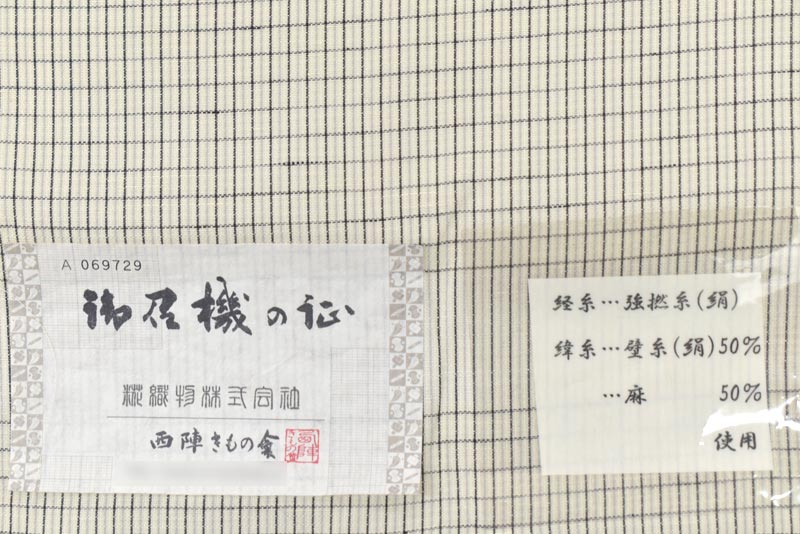 A 069729
御召機の証
糀織物株式会社
西陣きもの會
経糸…強撚糸(絹)
緯糸…壁糸(絹)50%
…麻 50%
使用